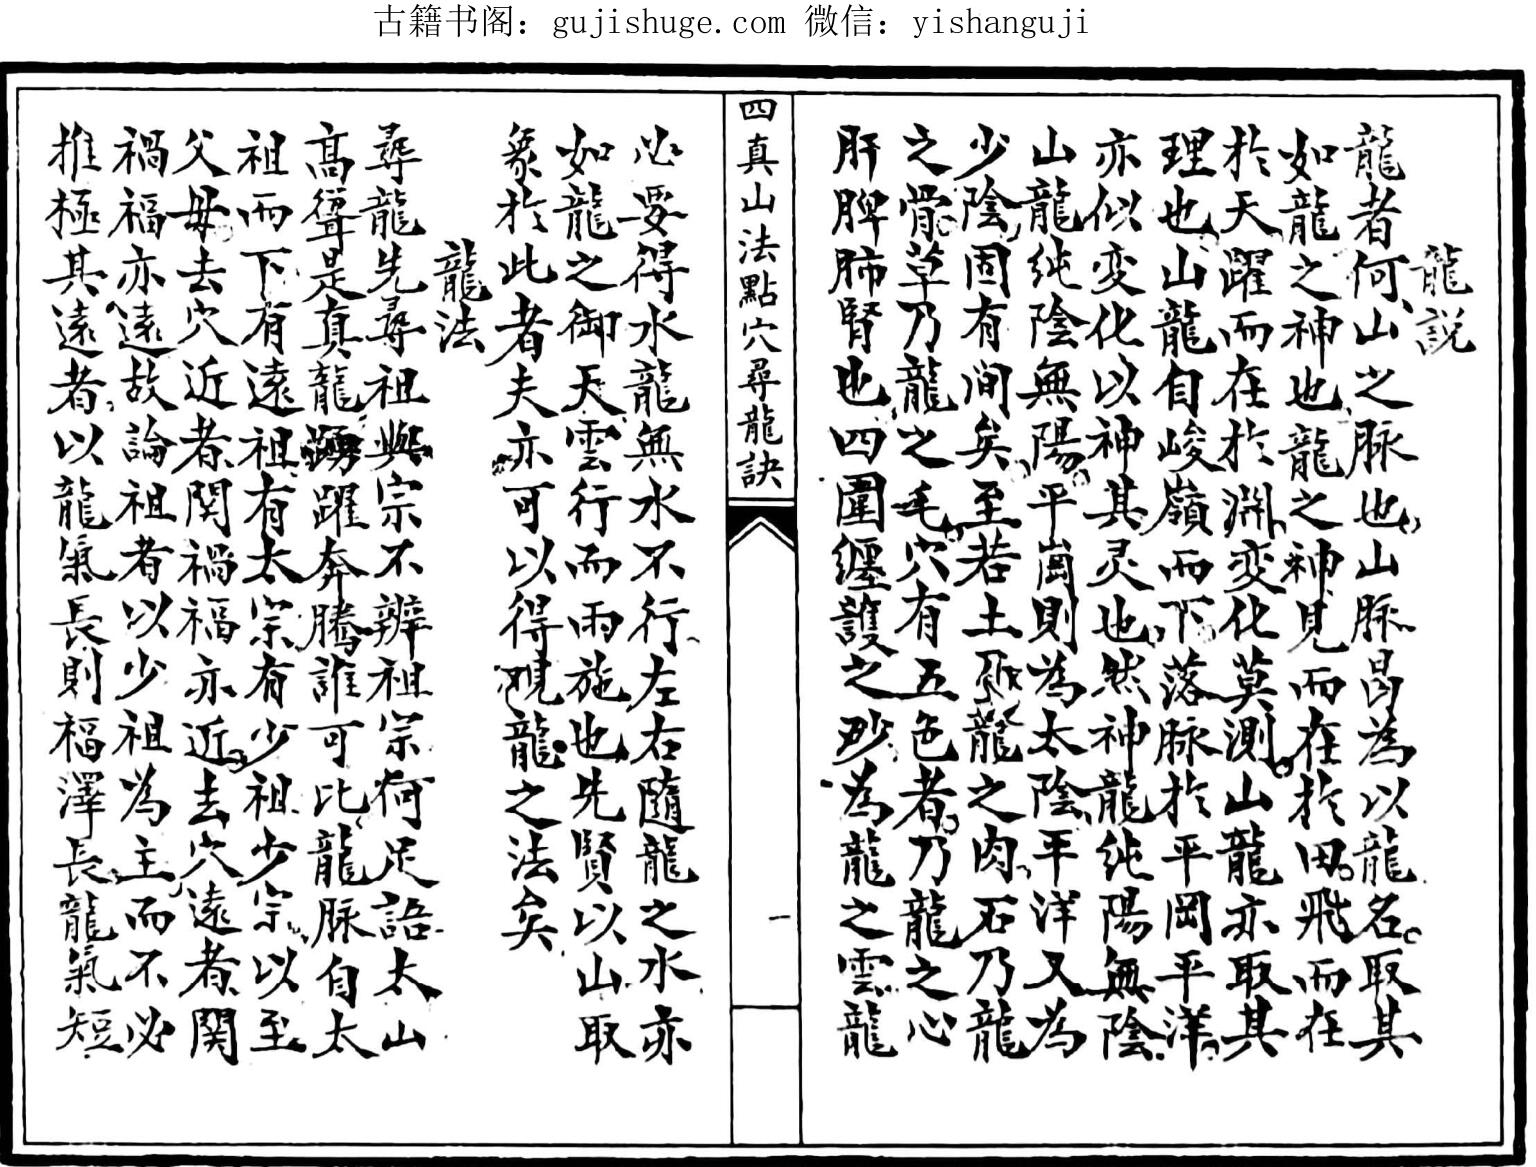 古籍书阁：gujishuge.com 微信：yishanguji
龍説
龍者何山之脉也山脉曷為以龍名取其
如龍之神也龍之神見而在於田飛而在
於天躍而在於淵変化莫測山龍亦取其
理也山龍自峻嶺而下落脉於平岡平洋
亦似変化以神其灵也然神龍純陽無陰
山龍純陰無陽平崗則為太陰平洋又為
少陰固有间矣至若土乃龍之肉石乃龍
之骨草乃龍之毛穴有五色者乃龍之心
肝脾肺腎也四圍纒護之砂為龍之雲龍
四真山法點穴尋龍訣
一
必要得水龍無水不行左右隨龍之水亦
如龍之御天雲行而雨施也先賢以山取
象於此者夫亦可以得覌龍之法矣
龍法
尋龍先尋祖與宗不辨祖宗何足語太山
高聳是真龍踴躍奔騰誰可比龍脉自太
祖而下有遠祖有太宗有少祖少宗以至
父母去穴近者関禍福亦近去穴遠者関
禍福亦遠故論祖者以少祖為主而不必
推極其遠者以龍氣長則福澤長龍氣短